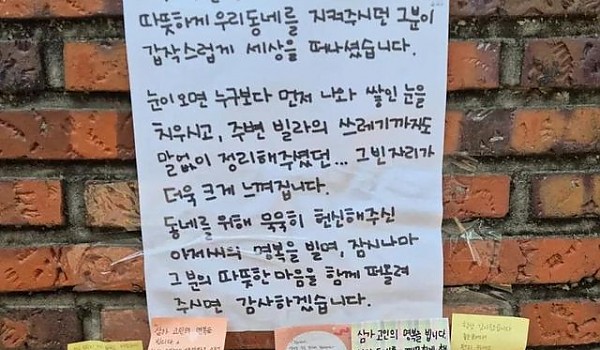 따뜻하게 우리동네를 지켜주시던 그분이
갑작스럽게 세상을 떠나셨습니다.
눈이오면 누구보다 먼저 나와 쌓인 눈을
치우시고, 주변 빌라의 쓰레기까지도
말없이 정리해주셨던... 그빈자리가
더욱 크게 느껴집니다.
동네를 위해 묵묵히 헌신해주신
아저씨의 명복을 빌며, 잠시나마
그분의 따뜻한 마음을 함께 떠올려
주시면 감사하겠습니다.
삼가 고인의 명복을
삼가 고인의 명복을 빕니다.